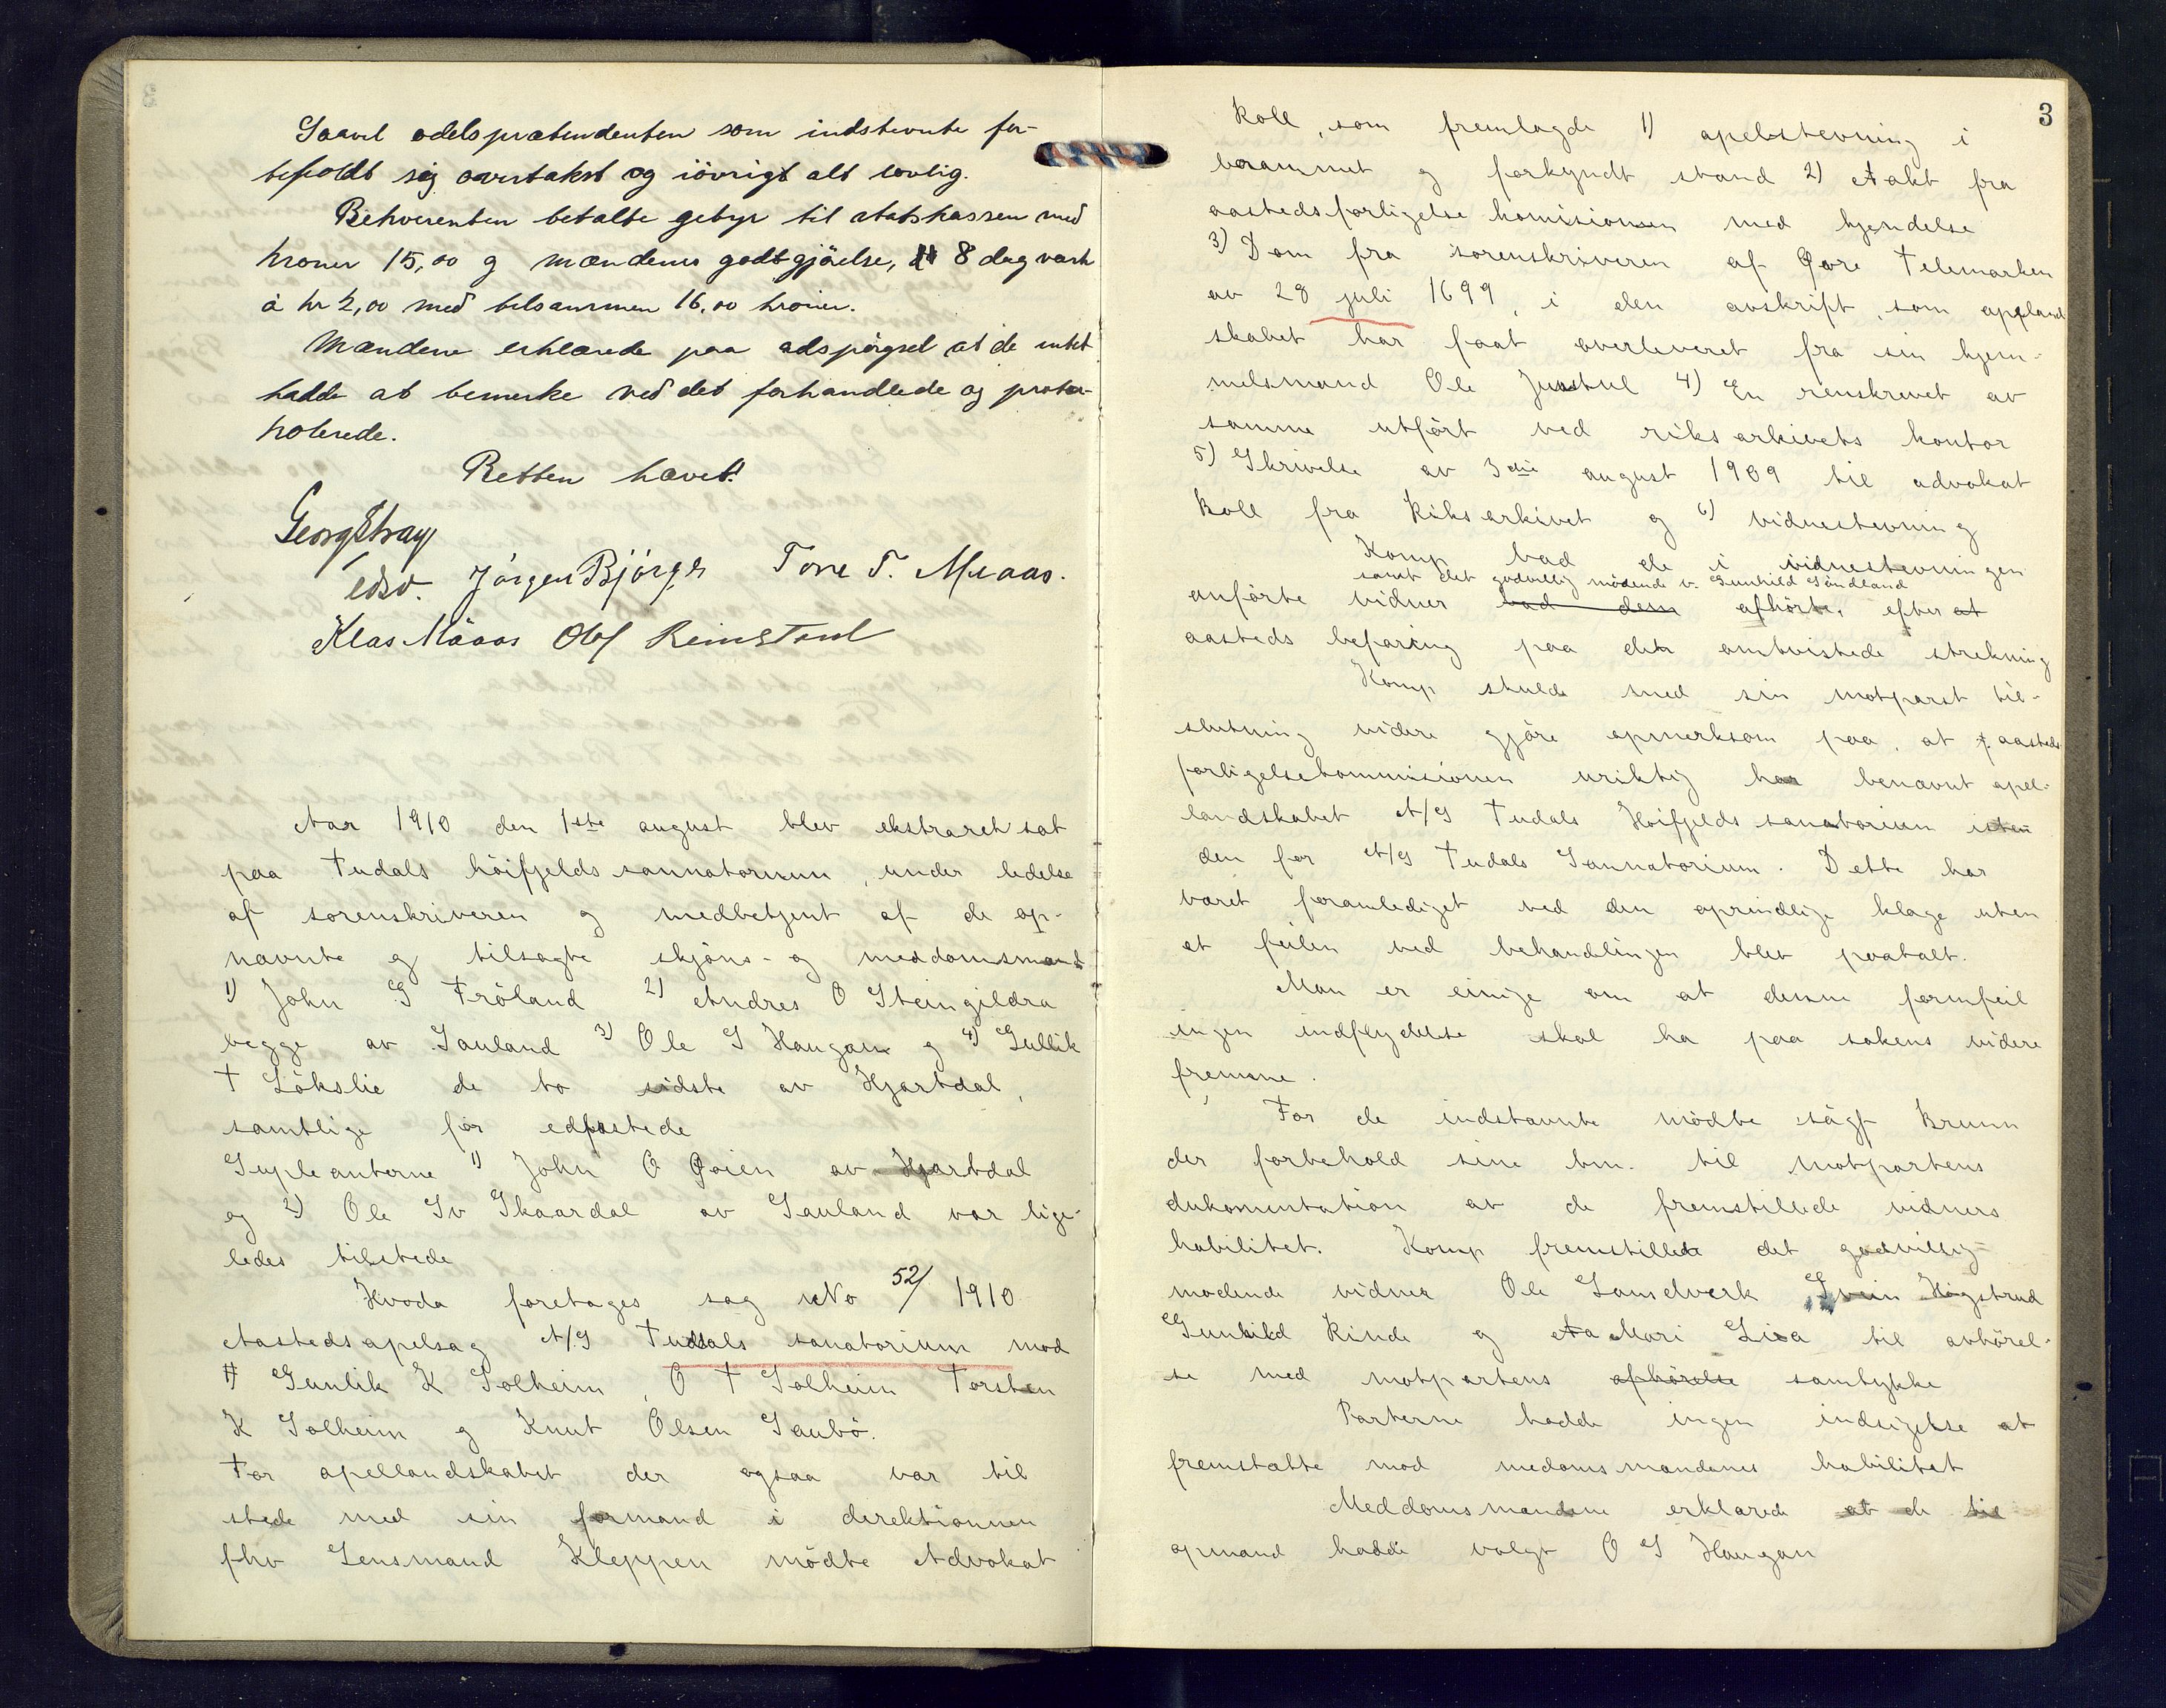 Saavel odelsprætendenten som indstevnte for-
befoldt sig overtakst og iövrigt alt lovlig.
Rekvirenten betalte gebyr til statskassen med
kroner 15,00 g mændenes godtgjörelse, 8 dagværk
à kr 2,00 med tilsammen 16,00 kroner.
Mændene erklærede paa adspörgsel at de intet
hadde at bemerke ved det forhandlede og proto-
kolerede.
Retten hævet!
Georg Stray
edsv. Jörgen Björge Tore T. Maas.
Klas Maaas Olf Reinstaul
Aar 1910 den 1ste august blev ekstraret sat
paa Tudals höifjelds sannatorium, under ledelse
af sorenskriveren g medbetjent af de op-
nævnte g tilsagte skjöns- og meddomsmænd
1) John G Fröland 2) Andres O Steingildra
begge av Sauland 3) Ole S Haugan g 4) Gullik
T Lökslie de to sidste av Hjartdal,
samtlige før edfæstede
Supleanterne 1) John O Qoien av Hjartdal
og 2) Ole Sv Skaardal av Sauland var lige-
ledes tilstede
Hvoda foretoges sag No 52/1910
Aastedsapelsag A/S Tudals sanatorium mod
Gunlik K Solheim, O T Solheim Torsten
K Solheim g Knut Olsen Saubö.
For apellandskabet der ogsaa var til
stede med sin formand i direktionnen
fhv Lensmand Kleppen mödte Advokat
3
Roll, som fremlagde 1) apelstevning i
berammet g forkyndt stand 2) Aakt fra
aastedsforligelse komisionen med kjendelse
3) Dom fra sorenskriveren af Qvre Telemarken
av 28 juli 1699, i den avskrift, som appland
skabet har faat overleveret fra sin hjem-
melsmand Ole Juvstul 4) En renskrevet av
samme utfört ved riksarkivets kontor
5) Skrivelse av 3die august 1909 til advokat
Roll fra Riksarkivet g 6) vidnestevning
Komp bad de i vidnestevningen
samt det godvillig mödende v. Gunhild Söndland
anförte vidner bad dem afhörte, efter at
aasteds befaring paa den omtvistede strekning
Komp skulde med sin motparst til-
slutning videre gjöre opmerksom paa, at f. aasteds
forligelsekommisionen uriktig har benævnt apel-
landskabet A/S Tudals Höifjelds sanatorium isten
den for A/S Tudals Sannatorium. Dette har
været foranlediget ved den oprindlige klage uten
at feilen ved behandlingen blev paatalt.
Man er einige om at denne formfeil
ingen indflydelse skal ha paa sakens videre
fremme.
For de indstævnte mödte sagf Brunn
der forbehold sine bm. til motpartens
dukomentation av de fremstillede vidners
habilitet. Komp fremstillede det godvillig-
mödende vidner Ole Landsverk Svein Högstrud
Gunhild Rinde g Aa Mari Lisa til avhörel-
se med motpartens afhörelse samtykke
Parterne hadde ingen indsigelse at
fremsætte mod medoms mændenes habilitet
Meddomsmændene erklærede at de til
opmand hadde valgt O S Haugan